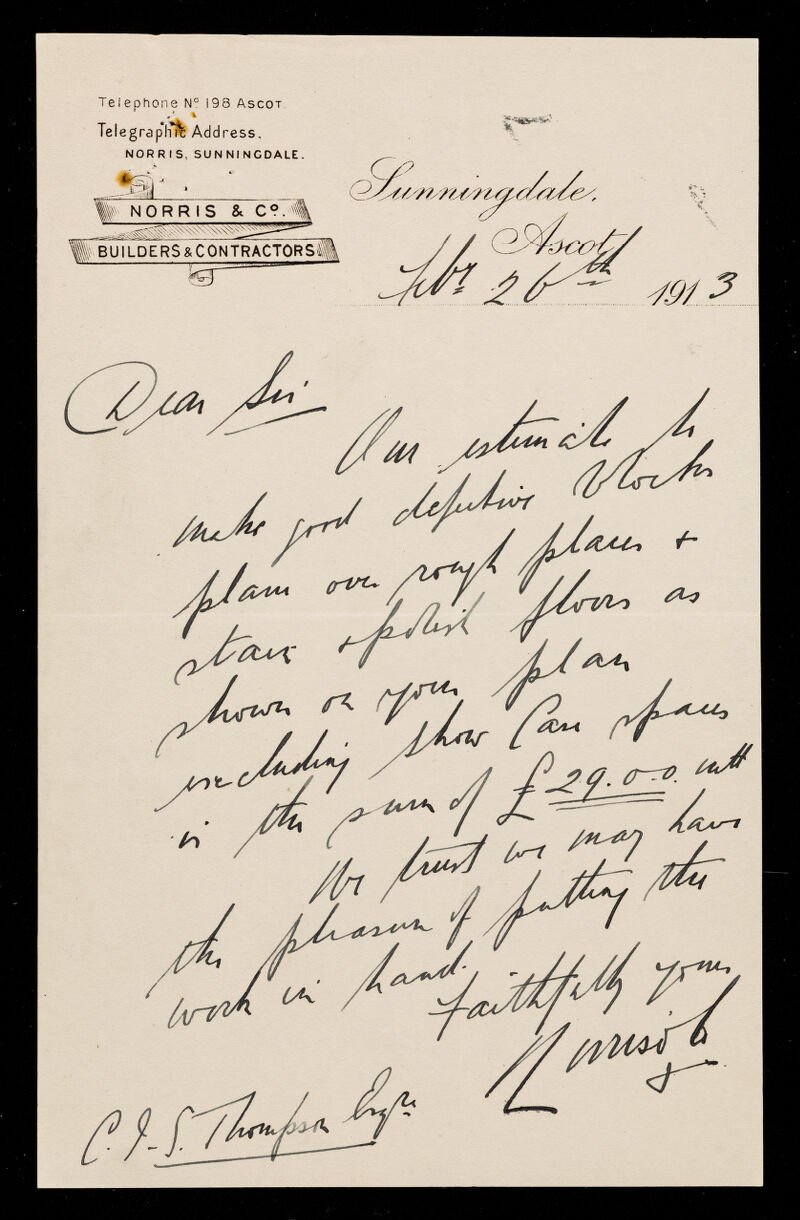 Telephone Nº 198 Ascot.
Telegraphic Address,
NORRIS, SUNNINGDALE.
NORRIS & Cº.
BUILDERS & CONTRACTORS
Sunningdale,
Ascot
Febr 26th 1913
Dear Sir
Our estimate to
make good defective blocks
plane over rough places +
stain + polish floors as
shown on your plan
excluding Show Case spaces
is the sum of £29.0.0. nett
We trust we may have
the pleasure of putting the
work in hand.
Faithfully yours
Norris & Co
C. J. S. Thompson Esqre